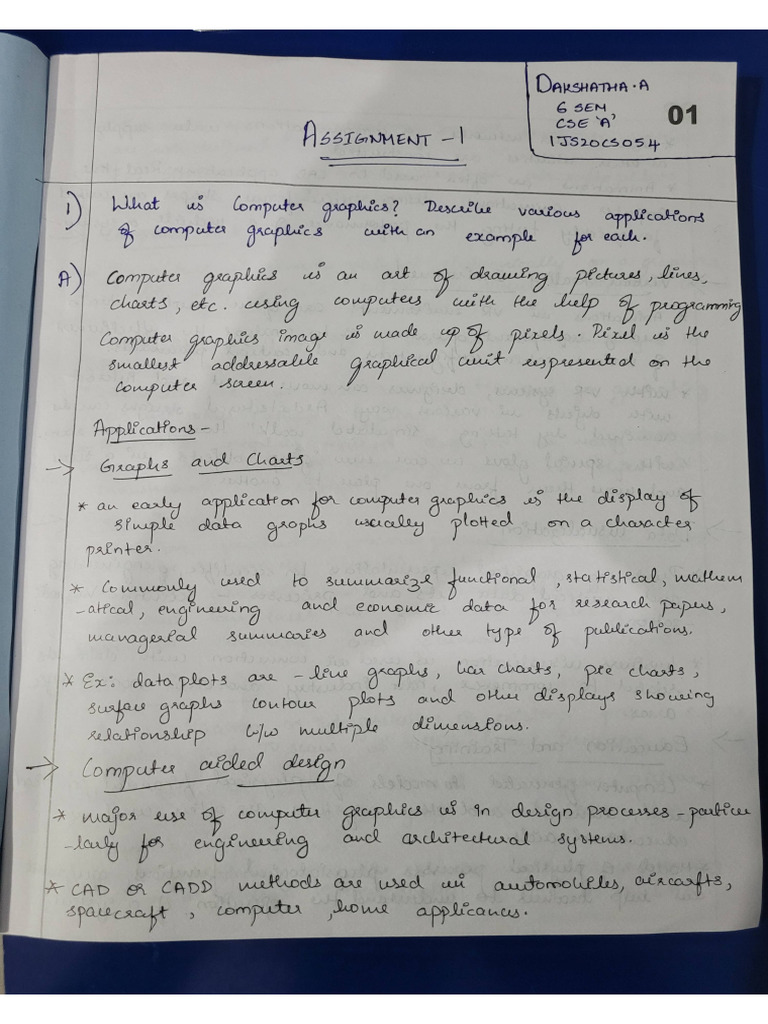 DAKSHATHA.A
6 SEM
CSE 'A'
1JS20CS054
01
ASSIGNMENT -1
1) What is Computer graphics? Describe various applications
of computer graphics with an example for each.
A) Computer graphics is an art of drawing pictures, lines,
charts, etc. using computers with the help of programming
Computer graphics image is made up of pixels. Pixel is the
smallest addressable graphical unit respresented on the
computer screen.
Applications-
→ Graphs and Charts
* an early application for computer graphics is the display of
simple data graphs usually plotted on a character
printer.
* Commonly used to summarize functional, statistical, mathem
-atical, engineering and economic data for research papers,
managerial summaries and other type of publications.
* Ex: data plots are - line graphs, bar charts, pie charts,
surface graphs contour plots and other displays showing
relationship b/w multiple dimensions.
→ Computer aided design
* major use of computer graphics is in design processes - particu
-larly for engineering and architectural systems.
* CAD or CADD methods are used in automobiles, aircarfts,
spacecraft, computer, home applicances.